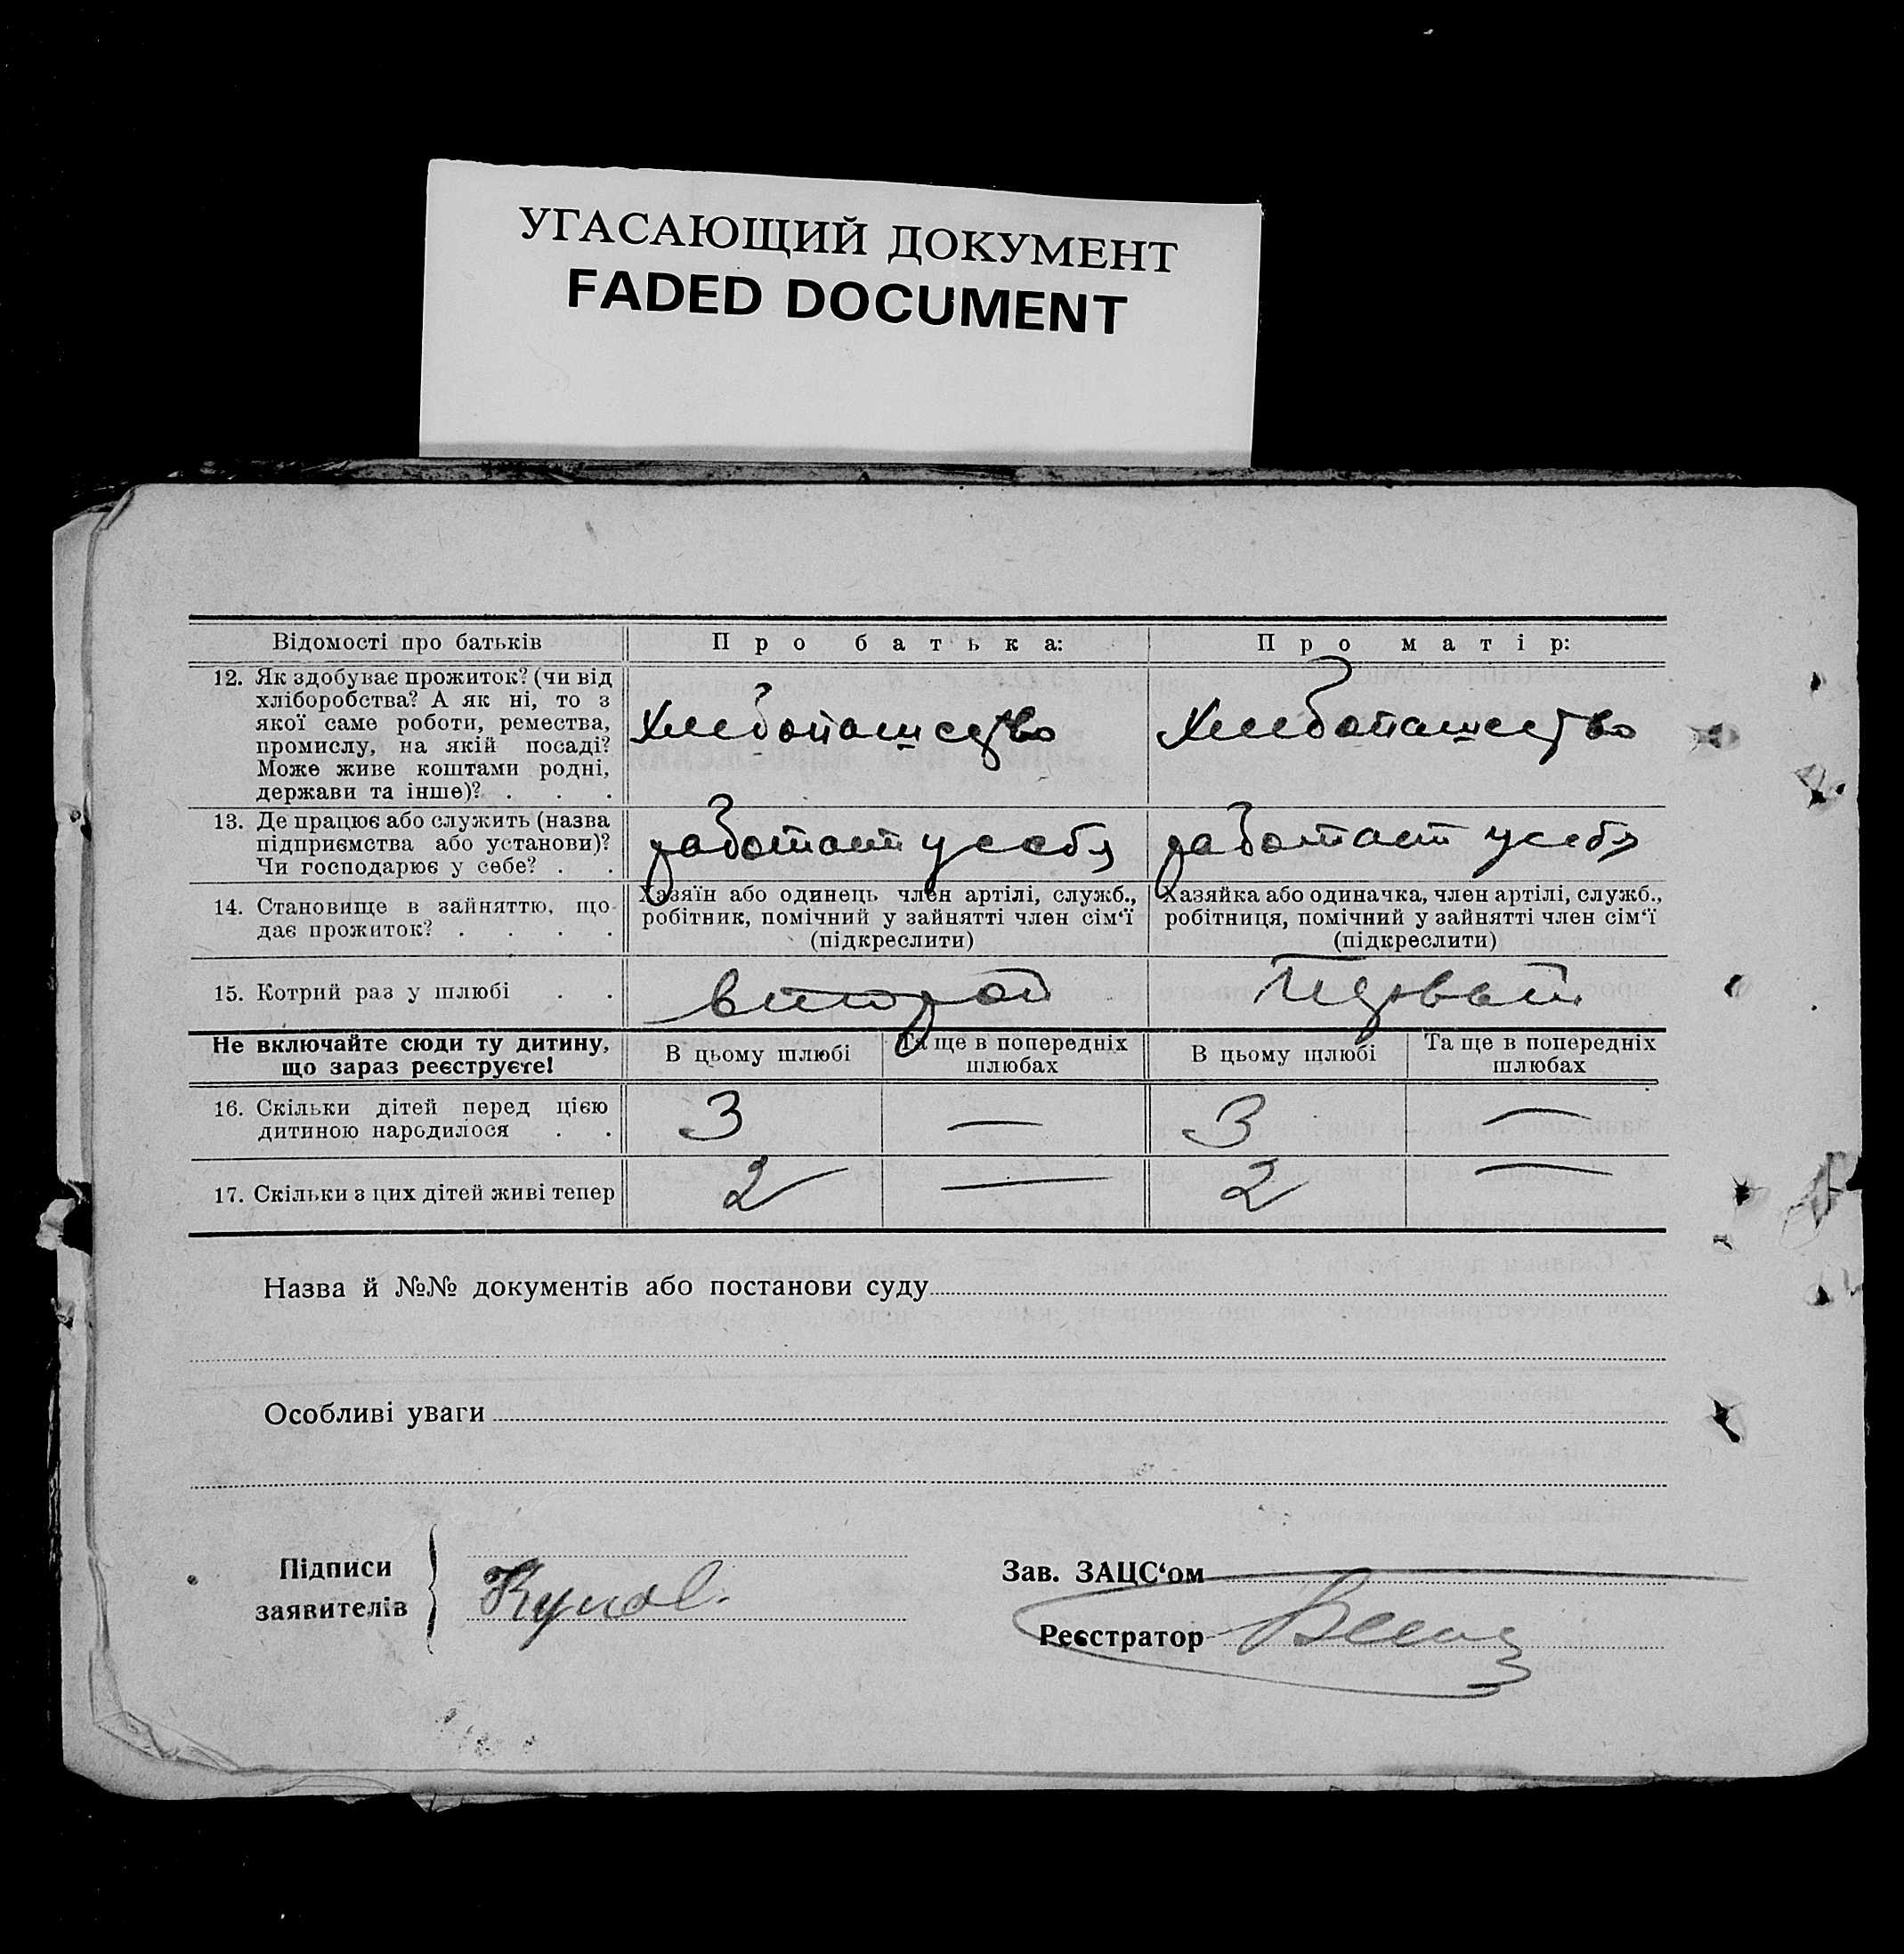 УГАСАЮЩИЙ ДОКУМЕНТ
FADED DOCUMENT
Відомості про батьків
Про батька:
Про матір:
12. Як здобуває прожиток? (чи від
хліборобства? А як ні, то з
якої саме роботи, ремества,
промислу, на якій посаді?
Може живе коштами родні,
держави та інше)? . . .
Хлебопашество
Хлебопашество
13. Де працює або служить (назва
підприємства або установи)?
Чи господарює у себе? . .
работает у себя
работает у себя
14. Становище в зайняттю, що
дає прожиток? . . . .
Хазяїн або одинець член артілі, служб.,
робітник, помічний у зайнятті член сім‘ї
(підкреслити)
Хазяйка або одиначка, член артілі, служб.,
робітниця, помічний у зайнятті член сім‘ї
(підкреслити)
15. Котрий раз у шлюбі . .
второй
Первый
Не включайте сюди ту дитину,
що зараз реєструєте!
В цьому шлюбі
Та ще в попередніх
шлюбах
В цьому шлюбі
Та ще в попередніх
шлюбах
16. Скільки дітей перед цією
дитиною народилося . .
3
—
3
—
17. Скільки з цих дітей живі тепер
2
—
2
—
Назва й №№ документів або постанови суду
Особливі уваги
Підписи
заявителів
Зав. ЗАЦС‘ом
Реєстратор